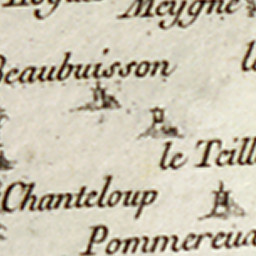 Meygne
Beaubuisson
le Teill
Chanteloup
Pommereua